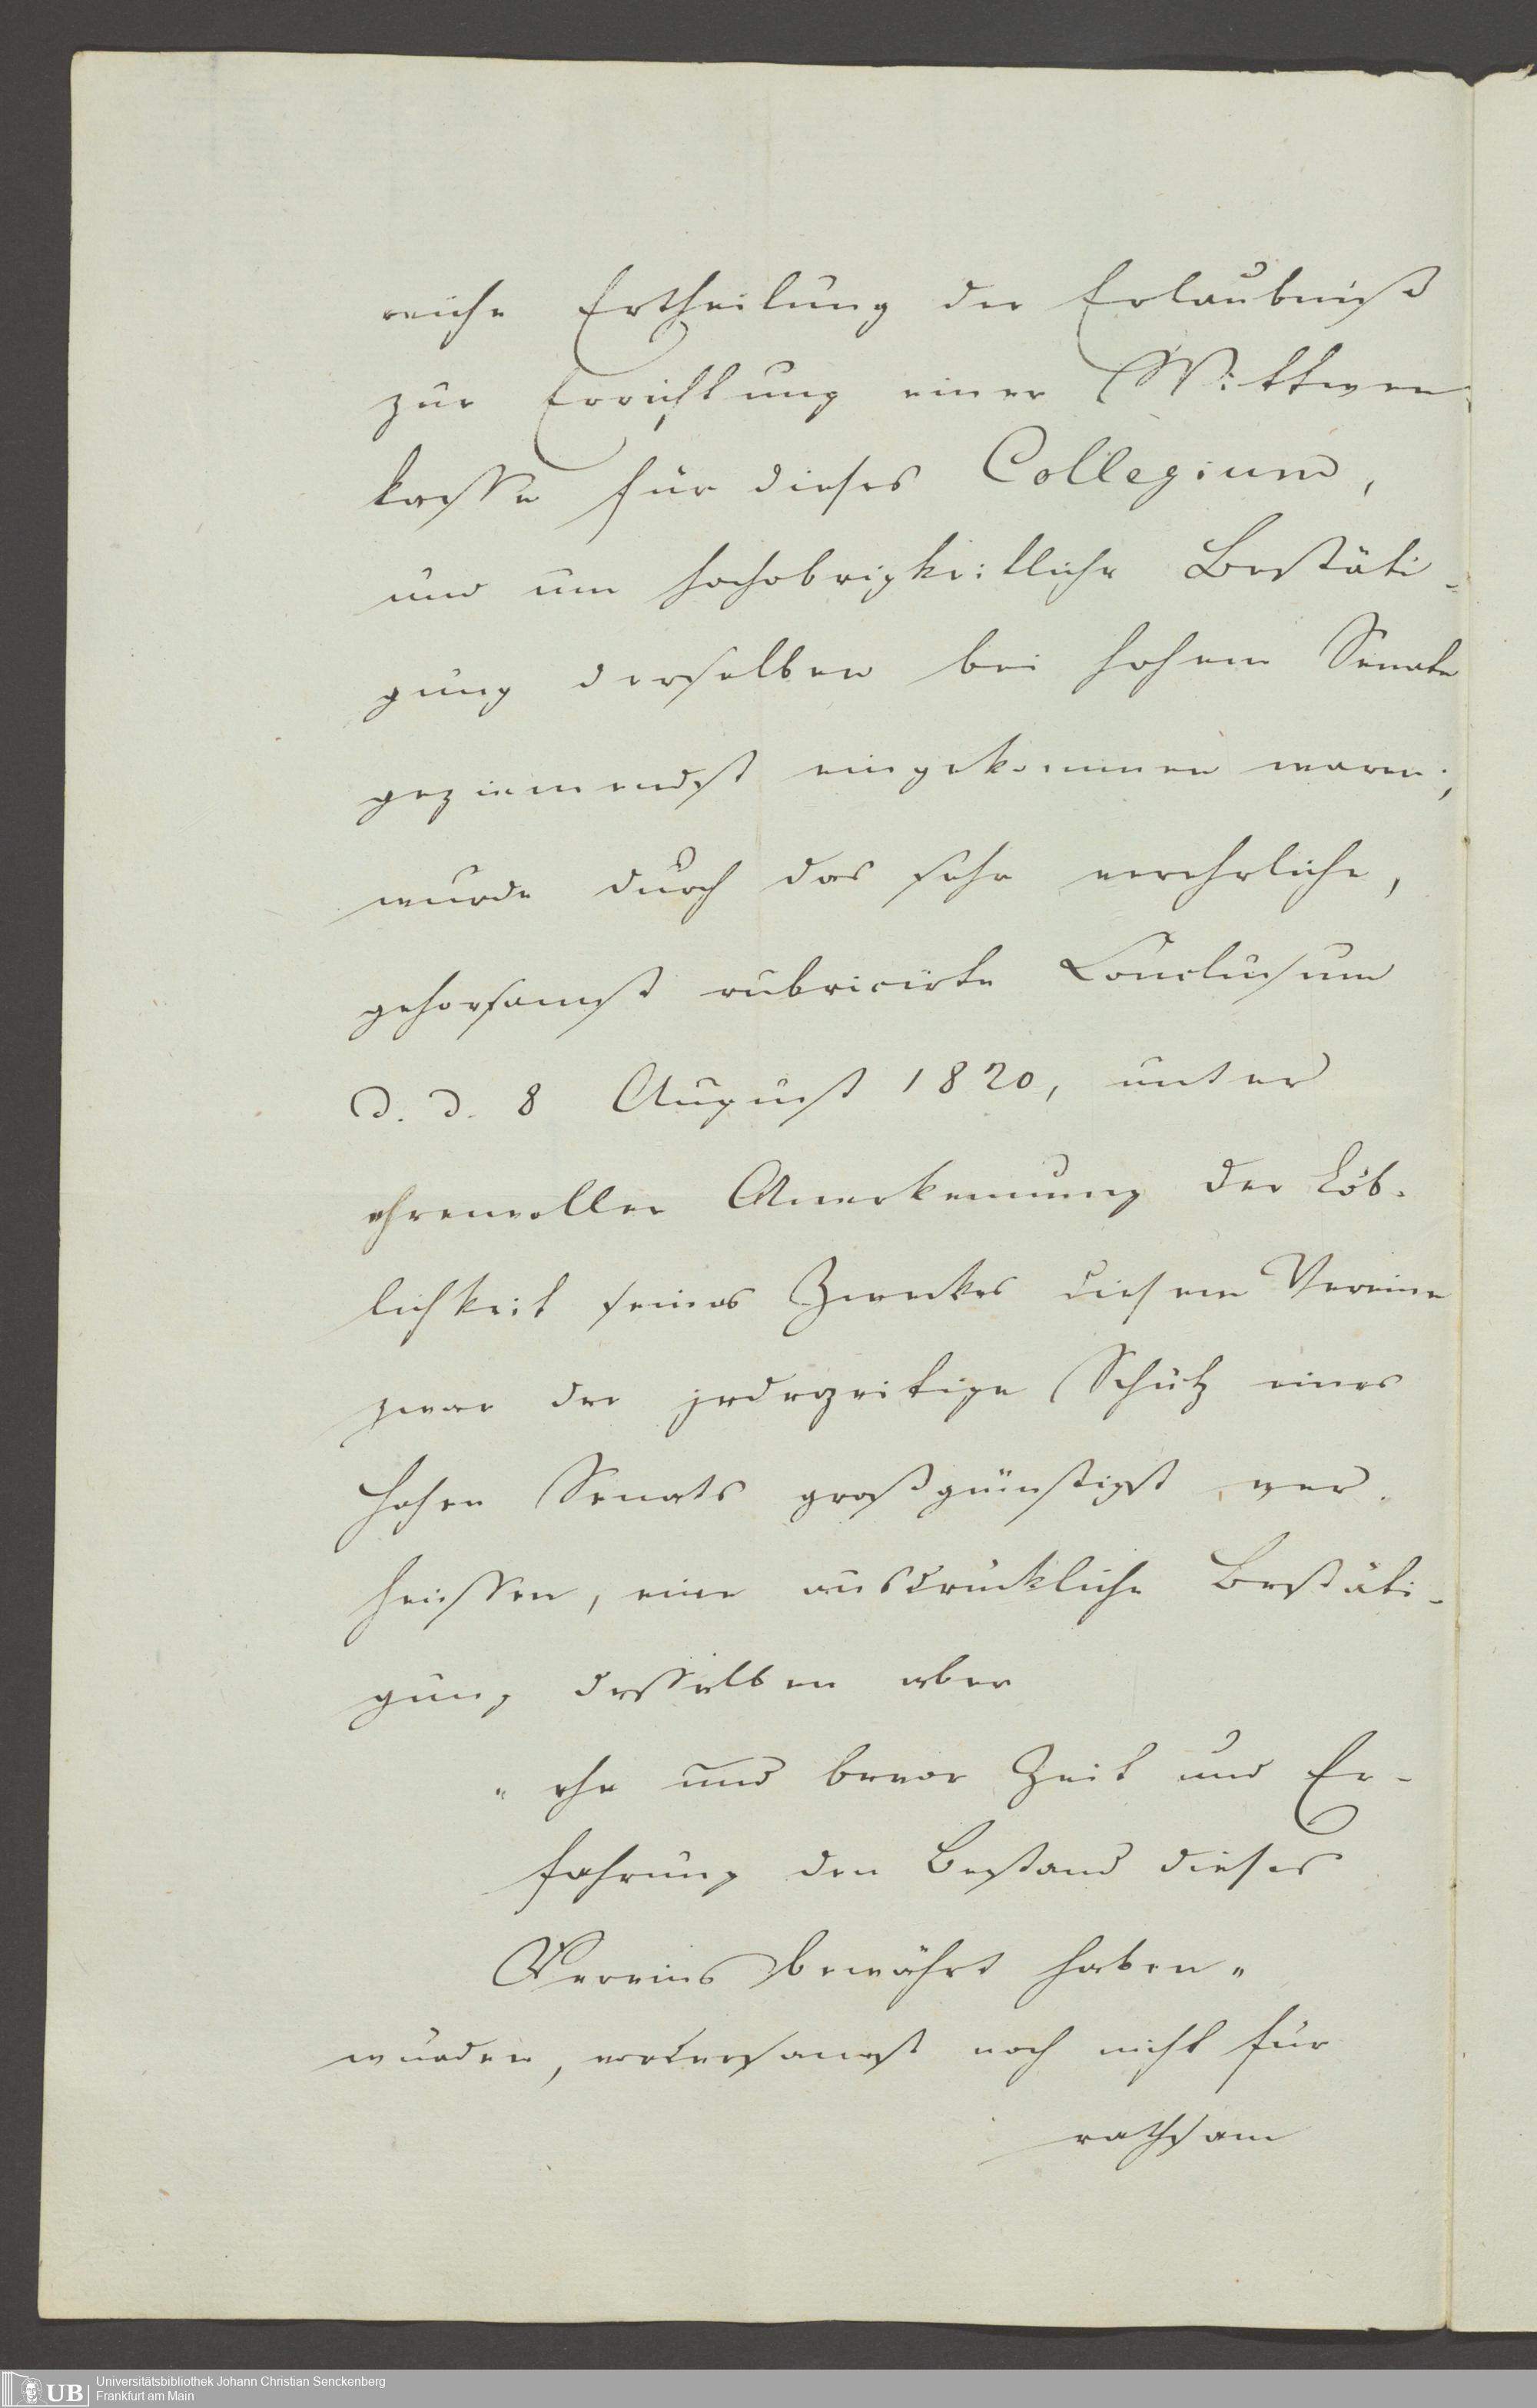 reiche Ertheilung der Erlaubniß
zur Errichtung einer Wittwen-
kasse für dieses Collegium,
und um hochobrigkeitliche Bestäti-
gung derselben bei hohem Senate
geziemendst eingekommen waren;
wurde durch das sehr verehrliche,
gehorsamst rubricirte Conclusum
d. d. 8 August 1820, unter
ehrenvoller Anerkennung der Löb-
lichkeit seines Zweckes diesem Vereine
zwar der jederzeitige Schutz eines
Hohen Senats großgünstigst ver-
heissen, eine ausdrückliche Bestäti-
gung desselben aber
"ehe und bevor Zeit und Er-
fahrung den Bestand dieses
Vereins bewährt haben"
wurden, vorsam noch nicht für
rathsam
Universitätsbibliothek Johann Christian Senckenberg
Frankfurt am Main
UB